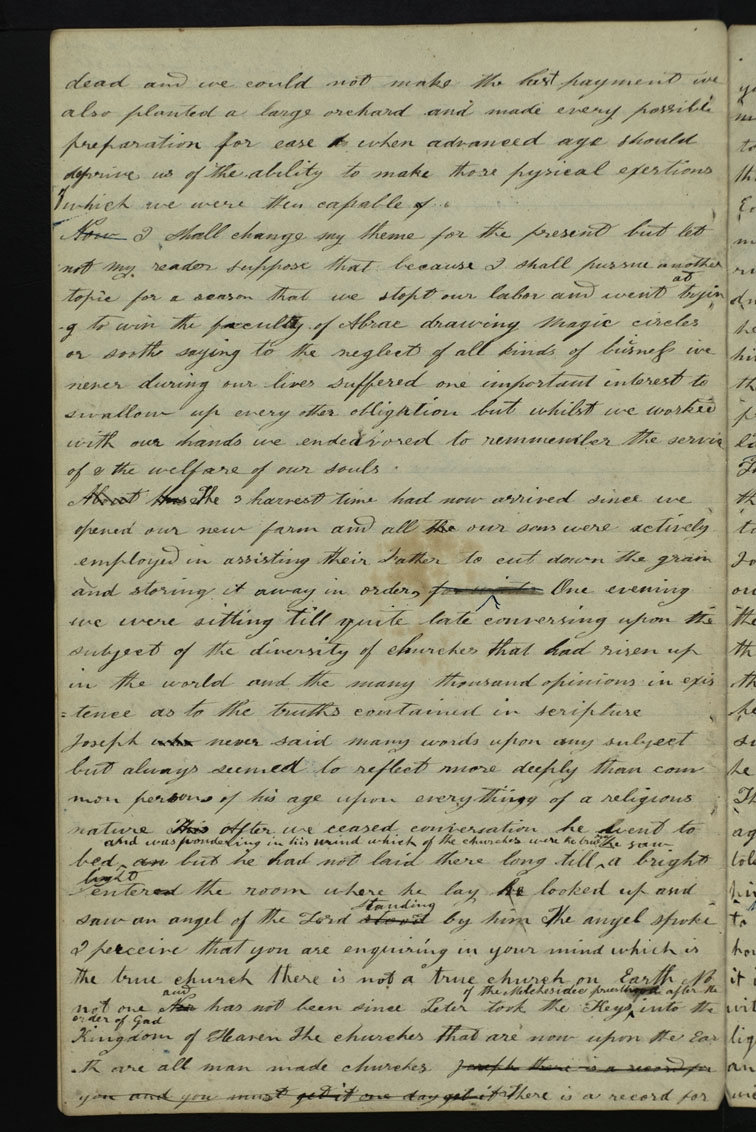 dead and we could not make the last payment we
also planted a large orchard and made every possible
preparation for ease when advanced age should
deprive us of the ability to make those pysical exertions
which we were then capable of
Now I shall change my theme for the present but let
not my reader suppose that because I shall pursue another
topic for a season that we stopt our labor and went at tryin
-g to win the faculty of Abrac drawing Magic circles
or sooth saying to the neglect of all kinds of buisness we
never during our lives suffered one important interest to
swallow up every other obligation but whilst we worked
with our hands we endeavored to remmember the service
of & the welfare of our souls.
The 3 harvest time had now arrived since we
opened our new farm and all the our sons were actively
employed in assisting their Father to cut down the grain
and storing it away in order, for winter One evening
we were sitting till quite late conversing upon the
subject of the diversity of churches that had risen up
in the world and the many thousand opinions in exis
=tence as to the truths contained in scripture
Joseph who never said many words upon any subject
but always seemed to reflect more deeply than com
mon persons of his age upon everything of a religious
nature This After we ceased conversation he went to
and was pondering in his mind which of the churches were the true one
bed an but he had not laid there long till he saw a bright
light
entered the room where he lay he looked up and
saw an angel of the Lord stood standing by him The angel spoke
I perceive that you are enquiring in your mind which is
the true church there is not a true church on Earth No
not one and has not been since Peter took the Keys of the Melchesidec priesthood after the
order of God into the
Kingdom of Heaven The churches that are now upon the Ear
-th are all man made churches Joseph there is a record for
you and you must get it one day get it there is a record for